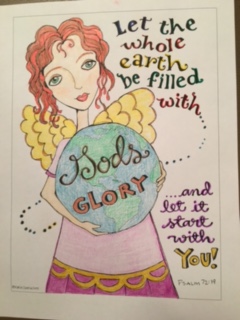 Let the
whole
earth
be filled
with...
God's
GLORY
....and
let it
start
with
You!
PSALM 72:19